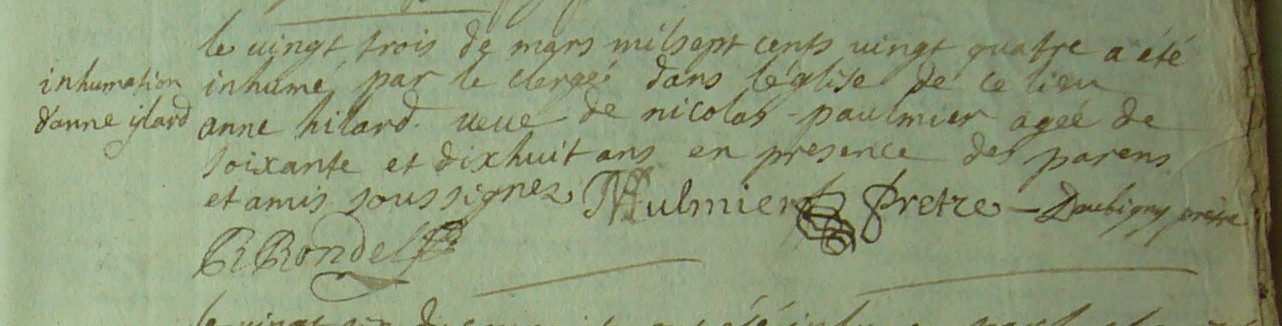 le vingt trois de mars mil sept cents vingt quatre a été
inhumation
d'anne ylard
inhumé par le clergé dans l'église de ce lieu
anne hilard veue de nicolas paulmier agée de
soixante et dixhuit ans en presence des parens
et amis soussignez Paulmier Pretre Daubigny pretre
R Rondel
le vingt